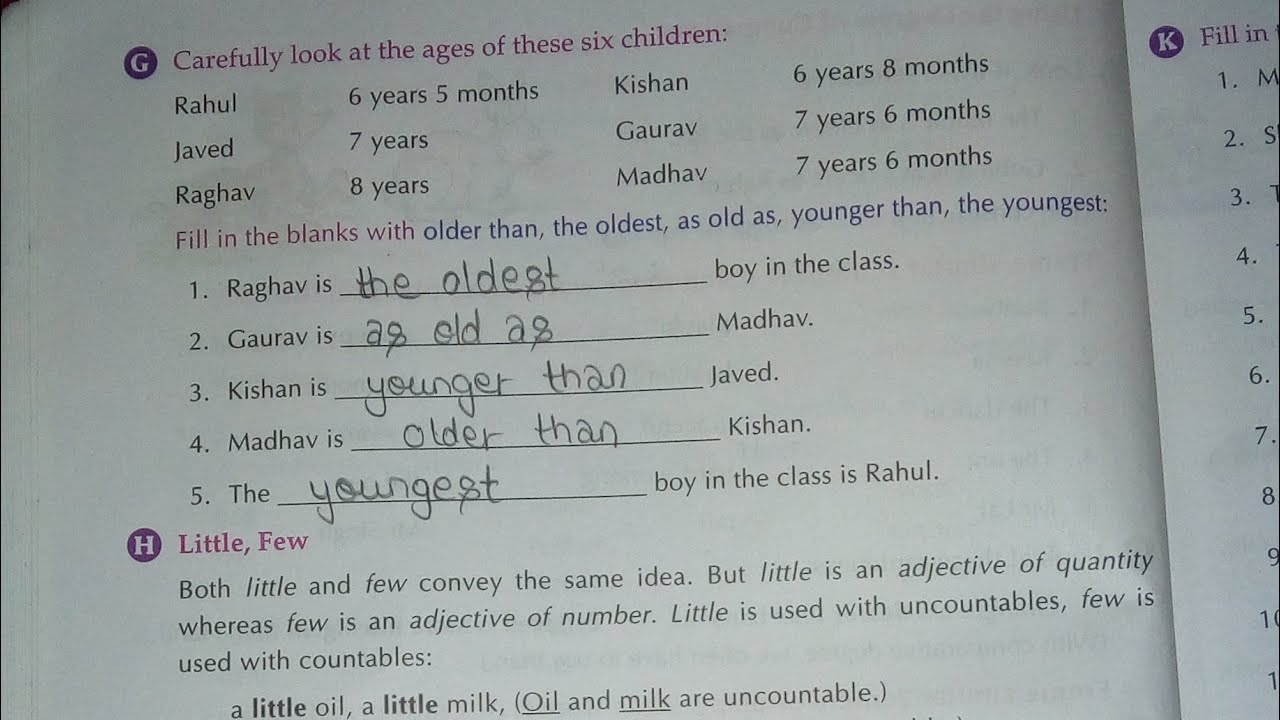 G Carefully look at the ages of these six children:
Rahul 6 years 5 months Kishan 6 years 8 months
Javed 7 years Gaurav 7 years 6 months
Raghav 8 years Madhav 7 years 6 months
Fill in the blanks with older than, the oldest, as old as, younger than, the youngest:
1. Raghav is the oldest boy in the class.
2. Gaurav is as old as Madhav.
3. Kishan is younger than Javed.
4. Madhav is older than Kishan.
5. The youngest boy in the class is Rahul.
H Little, Few
Both little and few convey the same idea. But little is an adjective of quantity
whereas few is an adjective of number. Little is used with uncountables, few is
used with countables:
a little oil, a little milk, (Oil and milk are uncountable.)
K Fill in
1. M
2. S
3.
4.
5.
6.
7.
8
9
10